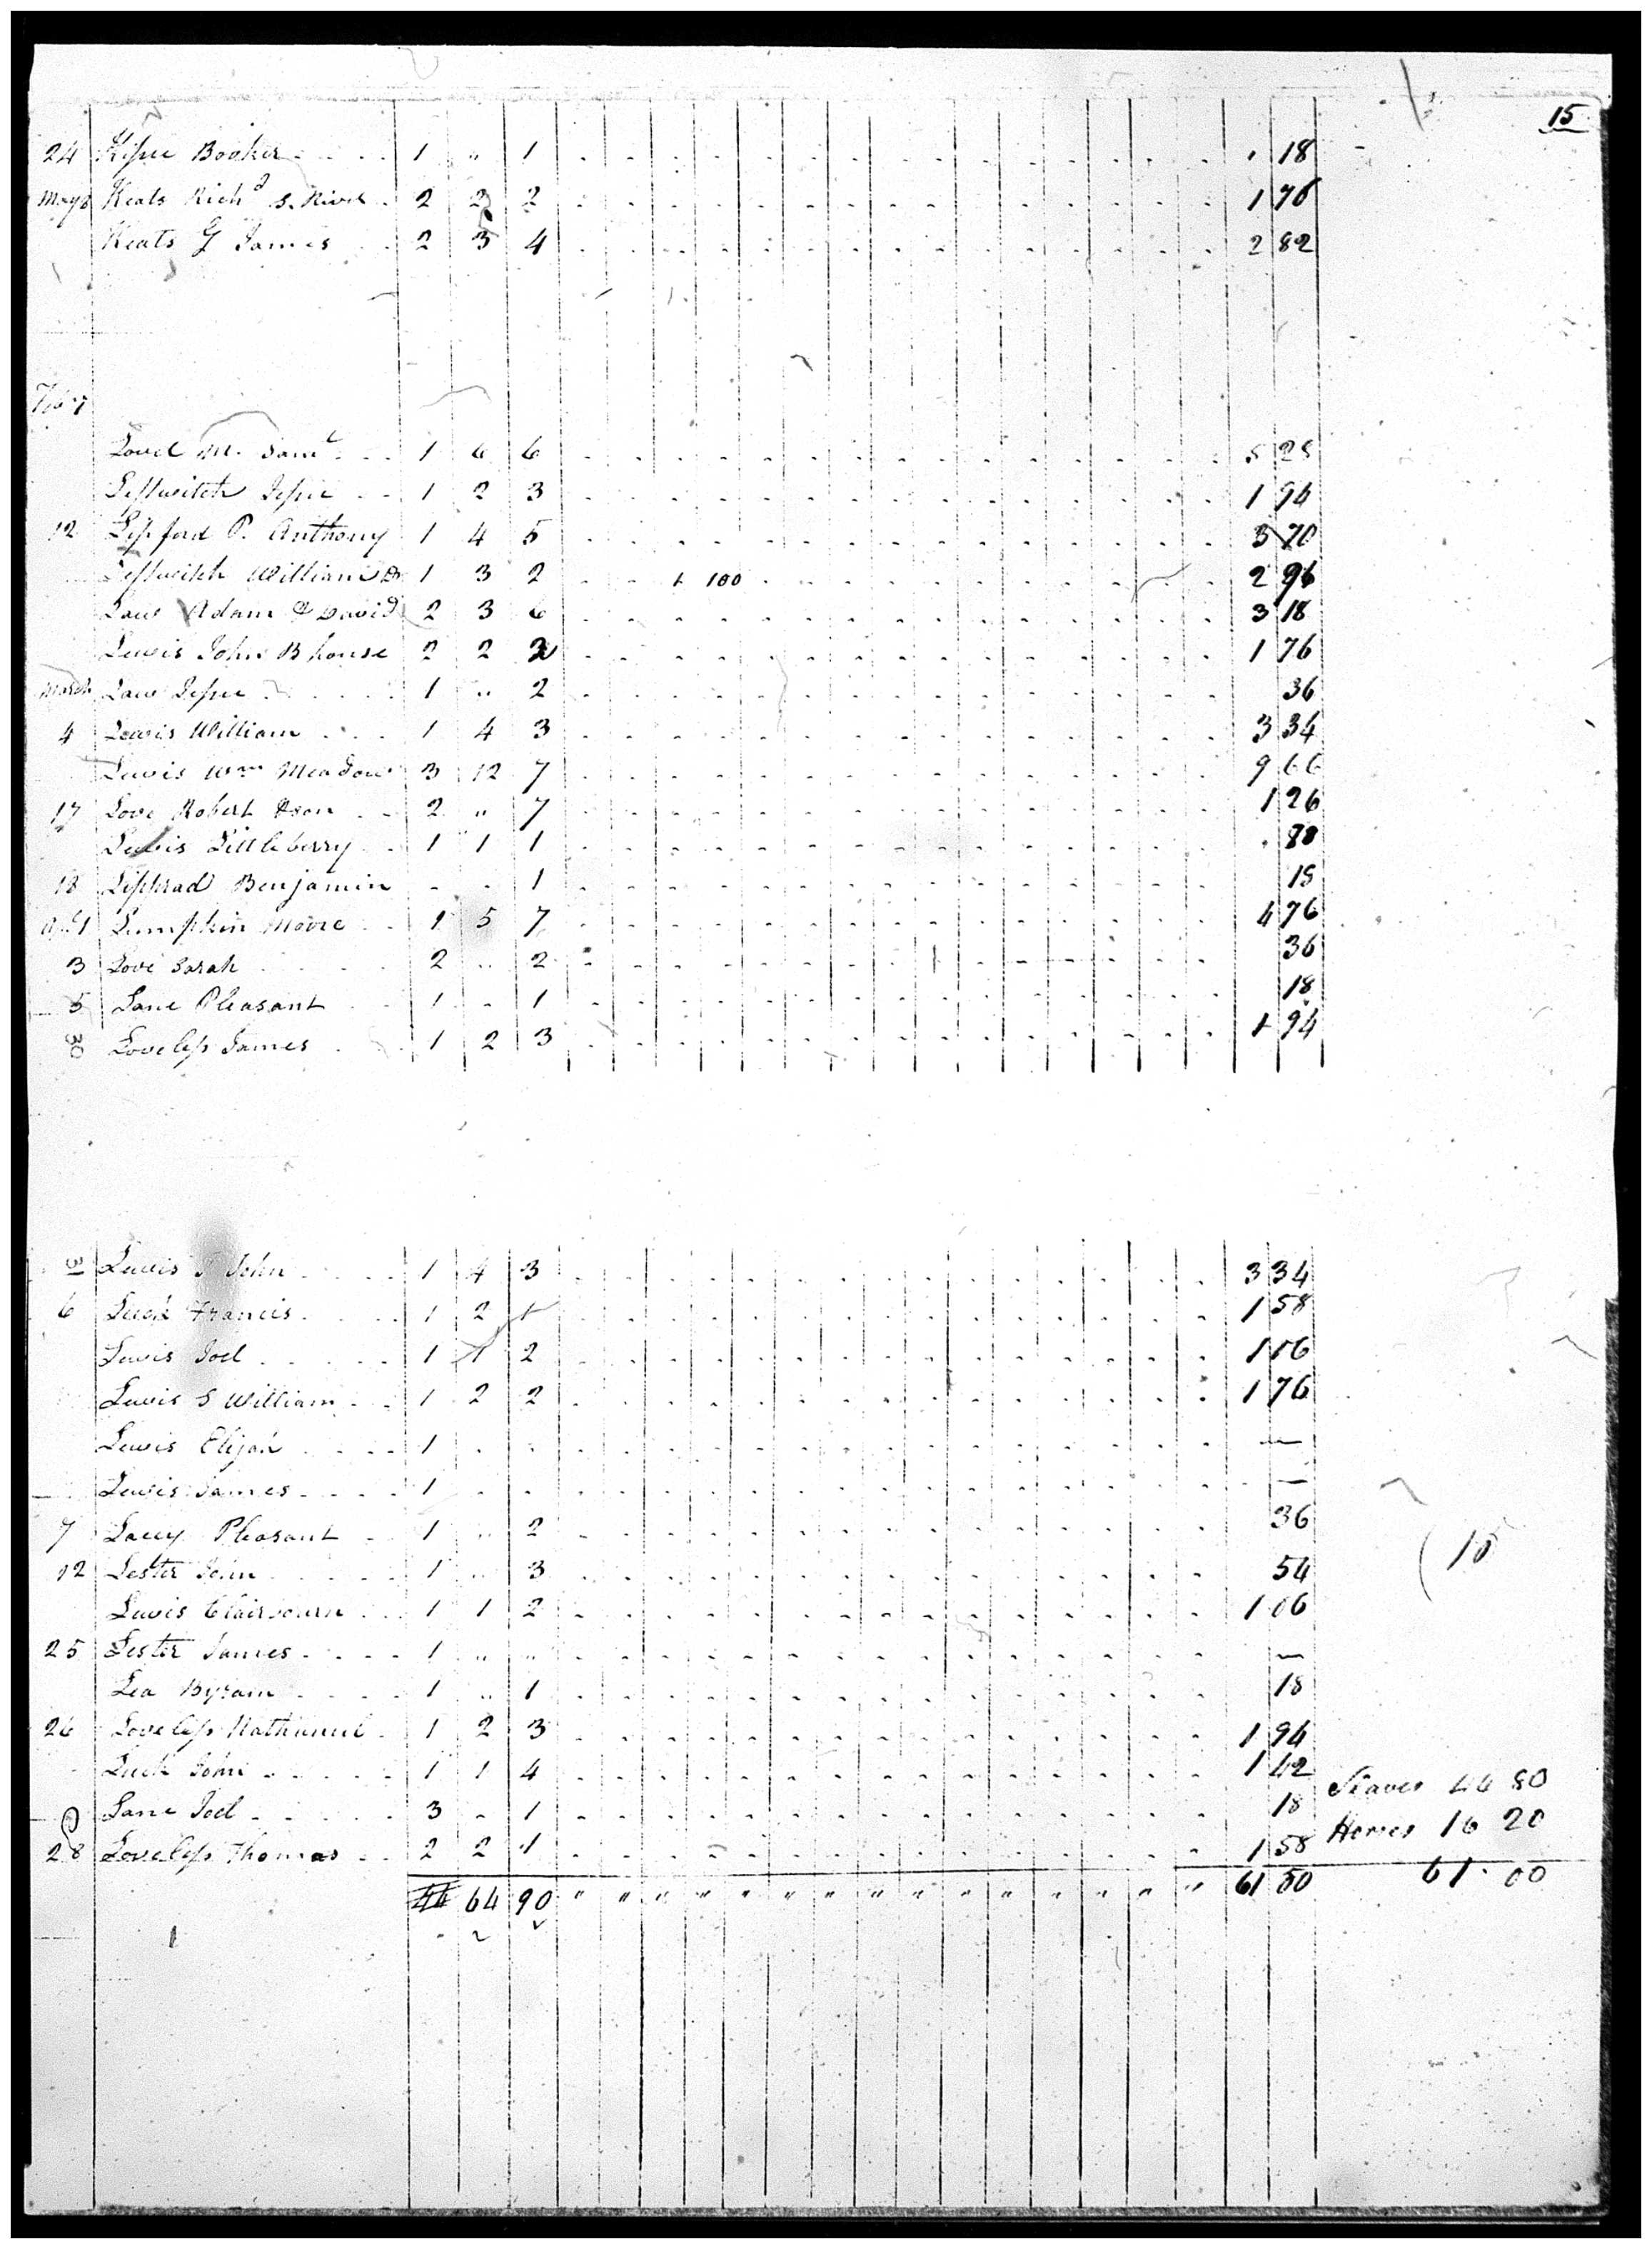 15
24 Kesee Booker 1 " 1 18
May 8 Keats Richd S. River 2 2 2 1 76
Keats G James 2 3 4 2 82
Feby
Lovel M. Saml 1 6 6 5 28
Leftwitch Jesse 1 2 3 1 94
12 Lipford P. Anthony 1 4 5 3 70
Leftwitch William 1 3 2 1 100 2 96
Law Adam & David 2 3 6 3 18
Lewis John B house 2 2 2 1 76
March Law Jesse 1 " 2 36
4 Lewis William 1 4 3 3 34
Lewis Wm Meadow 3 12 7 9 66
17 Love Robert & son 2 " 7 1 26
Lewis Littleberry 1 1 1 88
18 Benjamin - - 1 18
Apl 1 Lumpkin Moore 1 5 7 4 76
3 Love Sarah 2 " 2 36
5 Lane Pleasant 1 - 1 18
30 Loveless James 1 2 3 1 94
31 Lewis John 1 4 3 3 34
6 Luck Francis 1 2 1 1 58
Lewis Joel 1 1 2 1 06
Lewis S William 1 2 2 1 76
Lewis Elijah 1 —
Lewis James 1 —
7 Lacey Pleasant 1 " 2 36
(15
12 Lester John 1 " 3 54
Lewis Clairbourn 1 1 2 1 06
25 Lester James 1 " " —
Lea Byram 1 " 1 18
26 Loveless Nathaniel 1 2 3 1 94
Luck John 1 1 4 1 42
Slaves 44 80
Lane Joel 3 - 1 18
Horses 16 20
28 Loveless Thomas 2 2 1 1 58
44 64 90 " " " " " " " " " " " " " " " 61 00
61.00